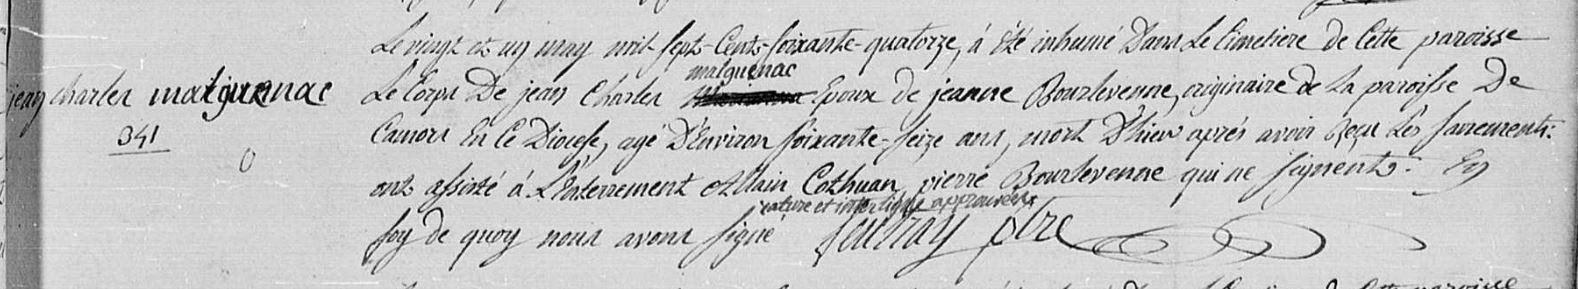 Le vingt et un may mil-sept-Cent-soixante-quatorze, á été inhumé Dans Le Cimetiere de Cette paroisse
malguenac
jean charles malguenac Le Corps De jean Charles Epoux de jeanne Bourlevenne, originaire de La paroisse De
341 Camors En Ce Diocese, agé D'Environ soixante-seize ans, mort D'hier aprés avoir Reçu Les sacrements:
ont assisté á L'Enterrement Allain Cothuan, pierre Bourlevenne qui ne signent: En
rature et interligne approuvées
foy de quoy nous avons signé ptre